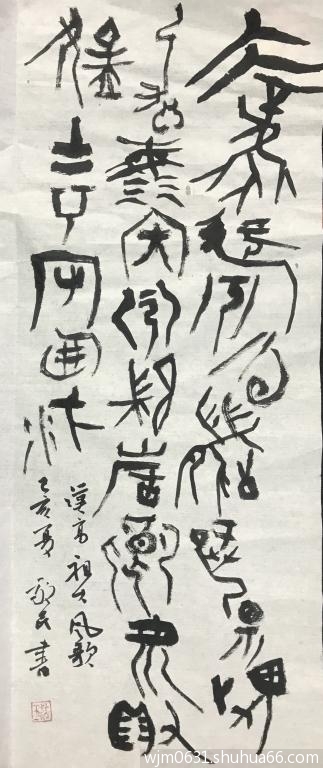 大風起兮雲飛揚
威加海内兮歸故鄉安得
猛士兮守四方
漢高祖大風歌
己亥夏 敬民書
wjm0631.shuhua66.com